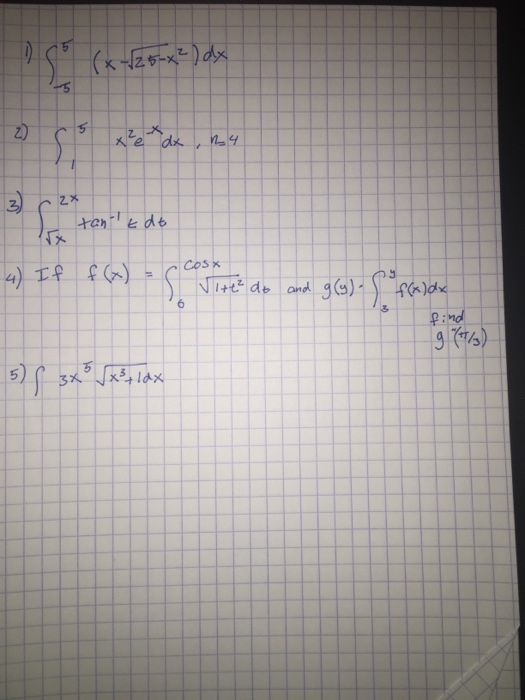 1) ∫₋₅⁵ (x-√25-x²) dx
2) ∫₁⁵ x²e⁻ˣ dx, n=4
3) ∫√x²ˣ tan⁻¹ t dt
4) If f(x) = ∫₆ᶜᵒˢˣ √1+t² dt and g(y) = ∫₃ʸ f(x)dx
find
g''(π/3)
5) ∫ 3x⁵ √x³+1 dx